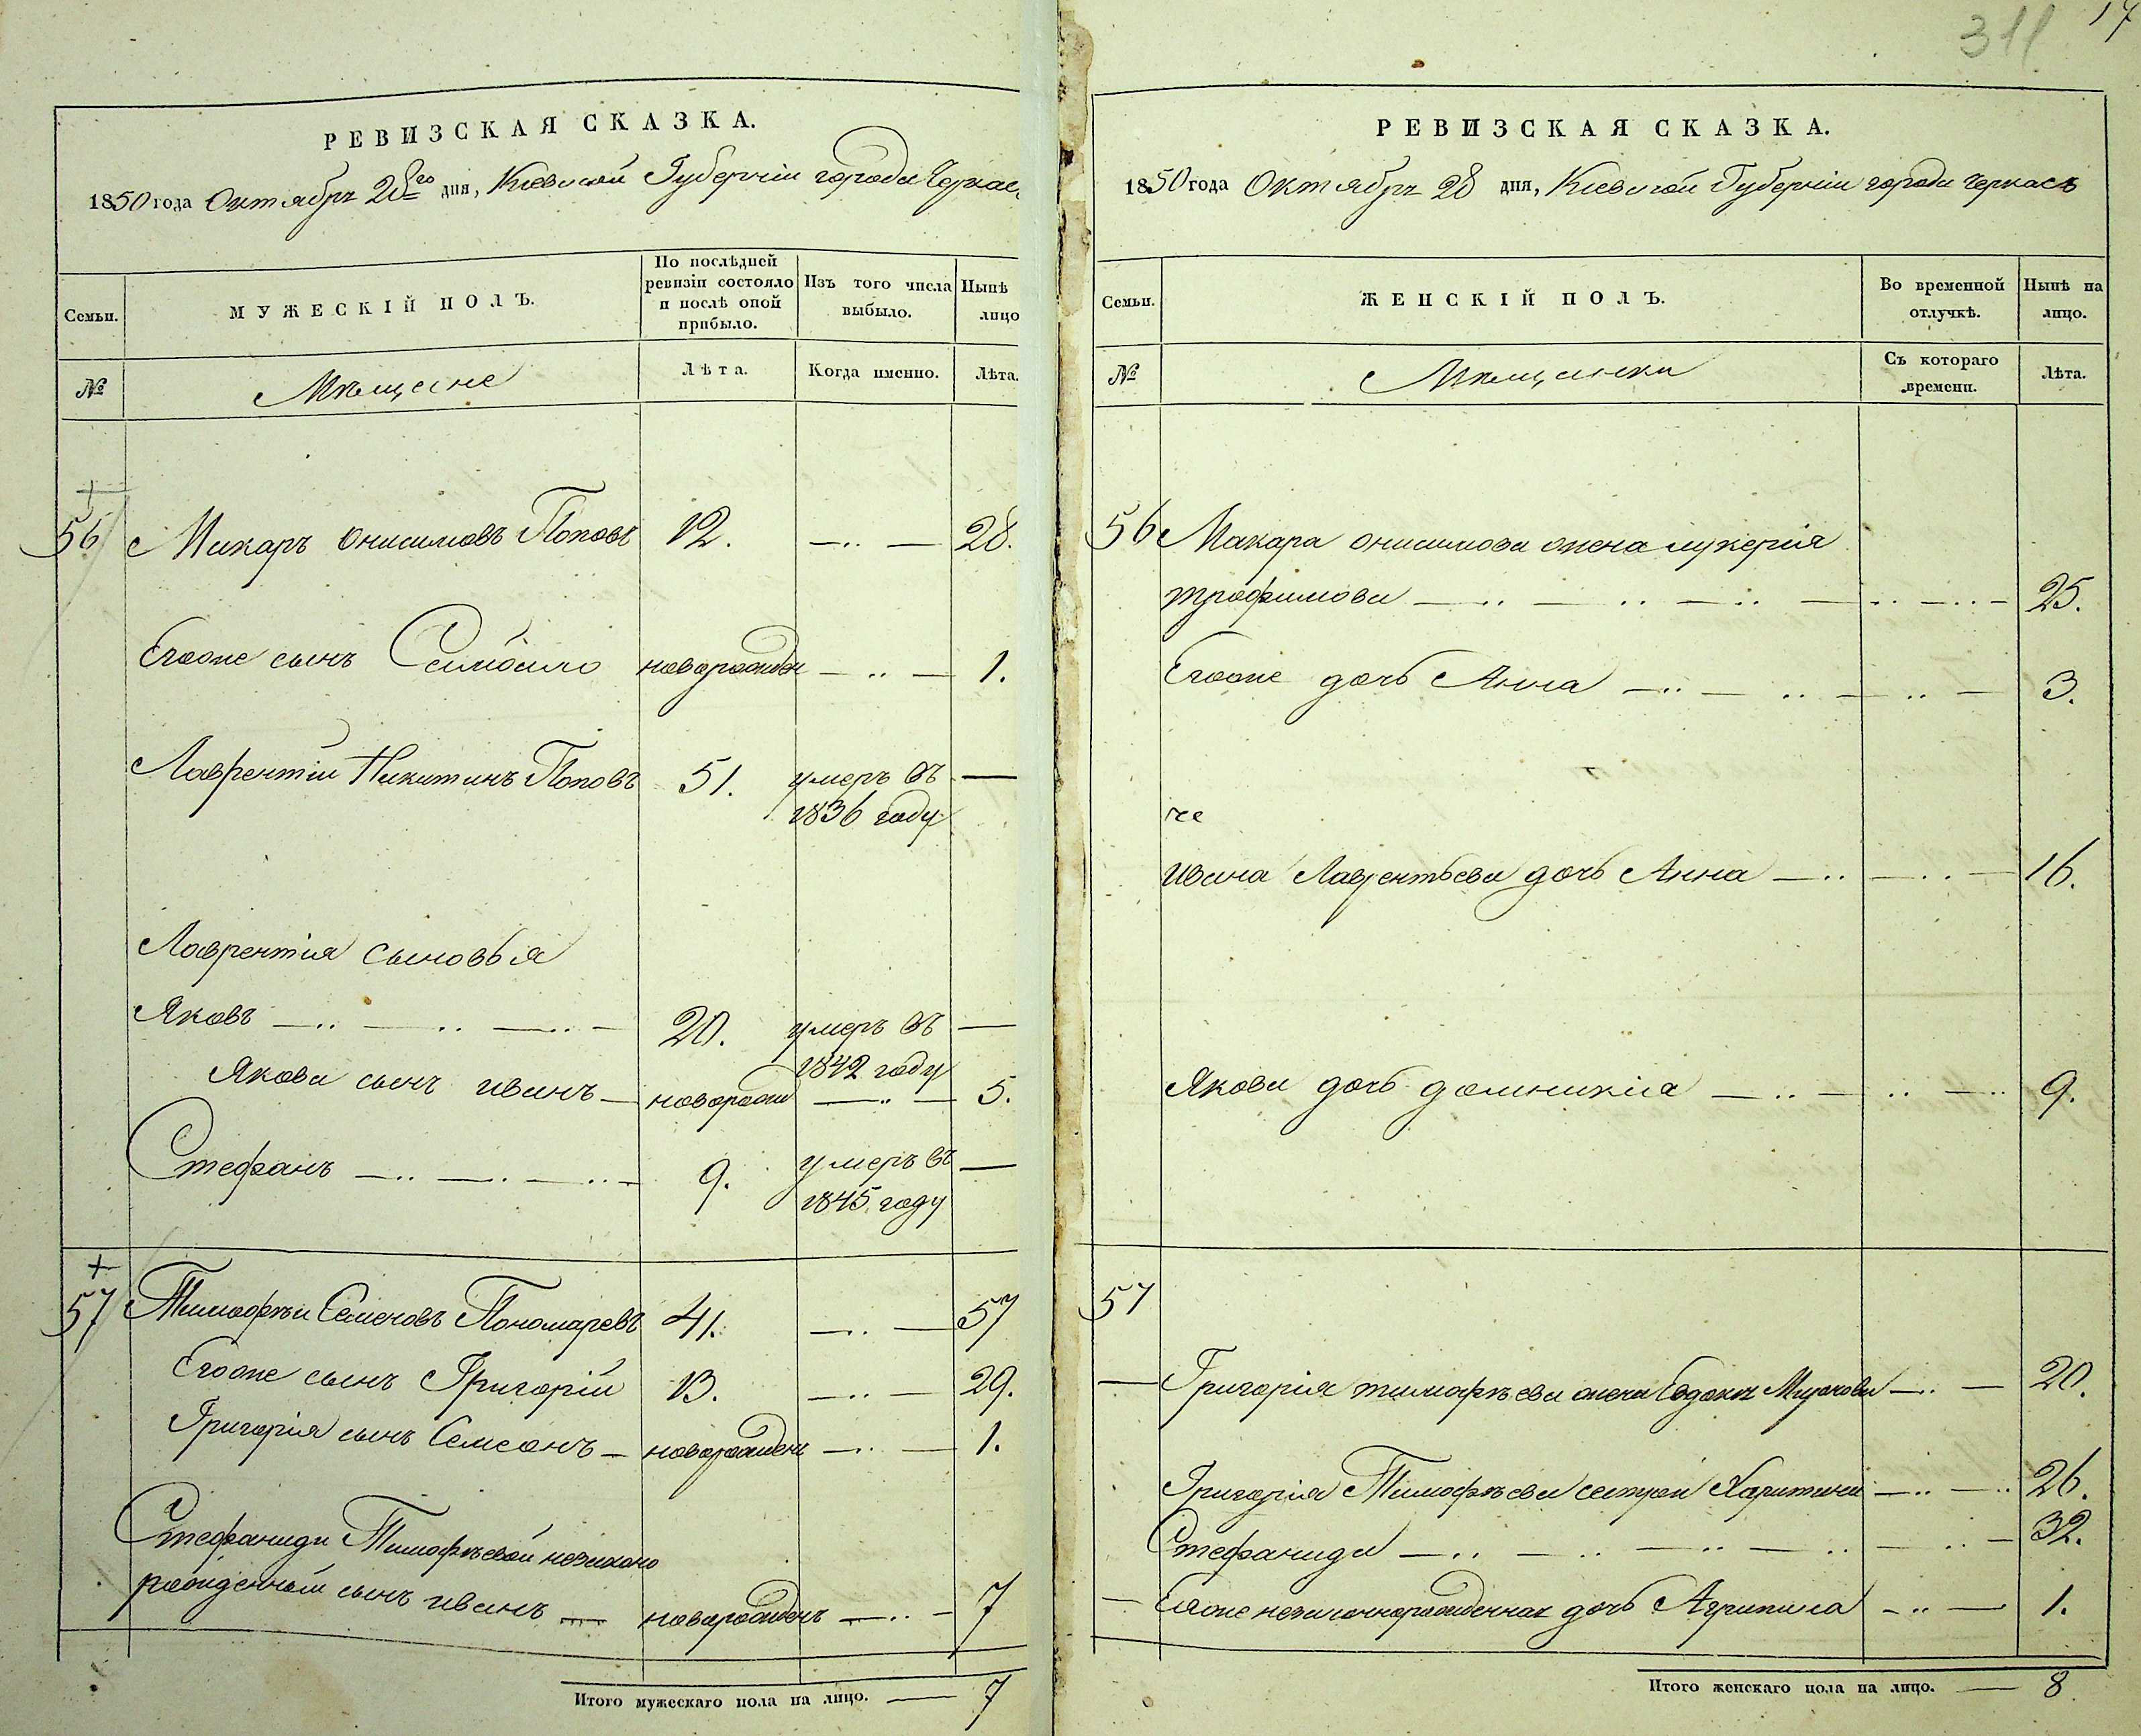 РЕВИЗСКАЯ СКАЗКА.
1850 года Октября 28го дня, Киевской Губернии города Черкас
Семьи.
МУЖЕСКІЙ ПОЛЪ.
По послѣдней
ревизіи состояло
и послѣ оной
прибыло.
Изъ того числа
выбыло.
Нынѣ
лицо
№
Мѣщане
Лѣта.
Когда именно.
Лѣта.
56 Макаръ Онисимовъ Поповъ 12. 28.
Егоже сынъ новорожден 1.
Лаврентіи Никитинъ Поповъ 51. умеръ въ
1836 году
Лаврентія сыновья
Яковъ 20. умеръ въ
1842 году
Якова сынъ иванъ новорож 5.
Стефанъ 9. умеръ въ
1845 году
57 Тимофѣи Семеновъ Пономаревъ 41. 57
Егоже сынъ Григорій 13. 29.
Григорія сынъ Семеонъ новорожденъ 1.
Стефаниды Тимофѣевой незаконо
рожденный сынъ иванъ новорожденъ 7
Итого мужескаго пола на лицо. 7
311 17
РЕВИЗСКАЯ СКАЗКА.
1850 года Октября 28 дня, Киевской Губерніи города Черкасъ
Семьи.
ЖЕНСКІЙ ПОЛЪ.
Во временной
отлучкѣ.
Нынѣ на
лицо.
№
Мѣщанки
Съ котораго
времени.
Лѣта.
56 Макара онисимова жена лукерія
трофимова 25.
Егоже дочь Анна 3.
че
ивана Лаврентьева дочь Анна 16.
Якова дочь домникія 9.
57
Григорія тимофѣева жена Евдокія 20.
Григорія Тимофѣева сестры Харитина 26.
Стефанида 32.
Еяже незаконнорожденная дочь Агрипина 1.
Итого женскаго пола на лицо. 8